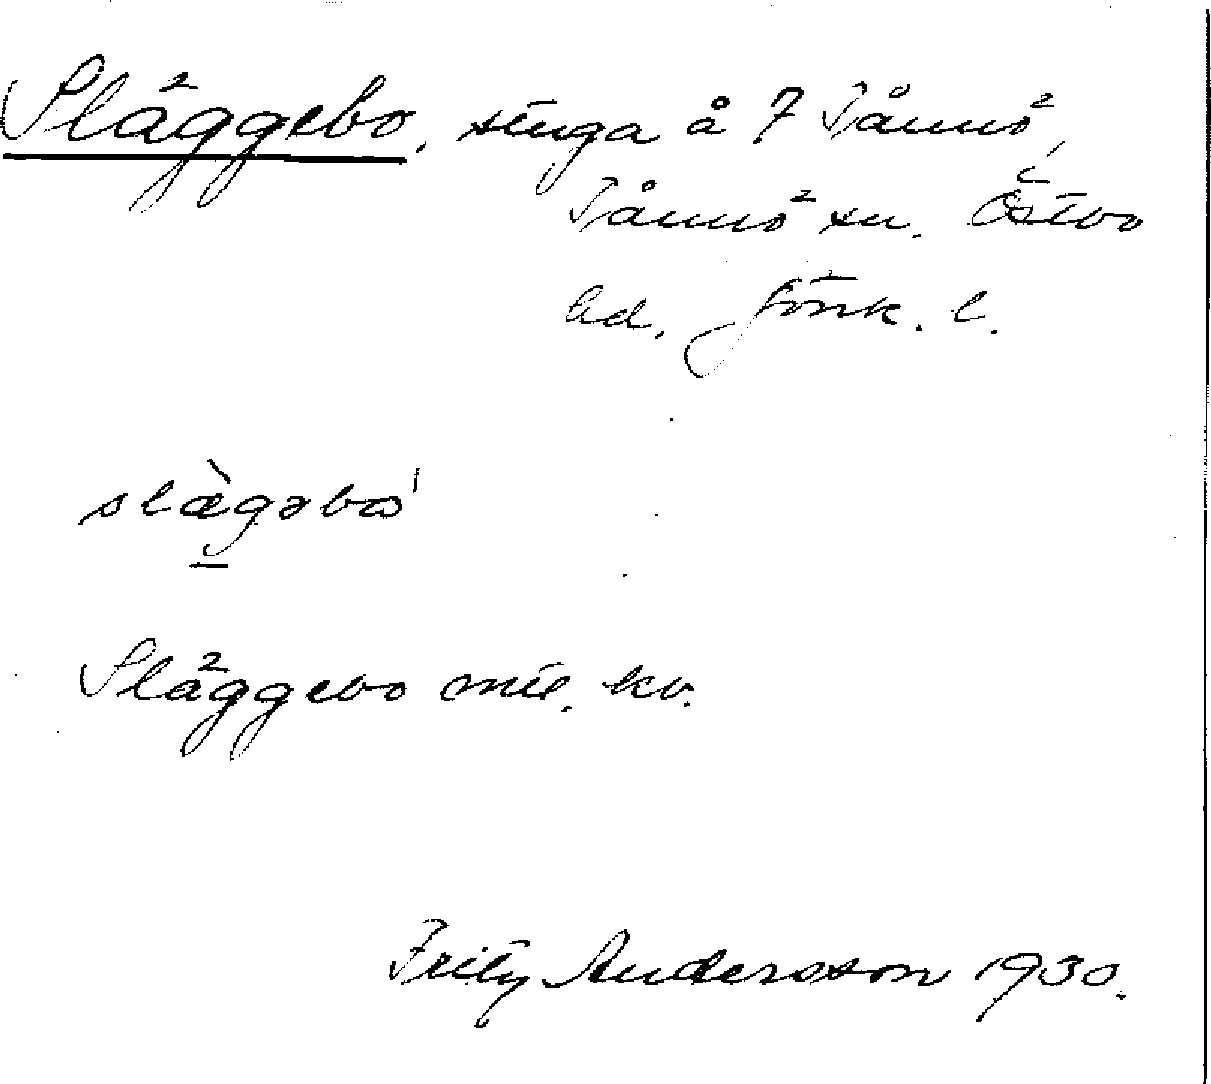 Släggebo, stuga å 7 Tånnö,
Tånnö sn. Östbo
hd, Jönk. l.
slæ̀gəbω'
Släggebo mil. kv.
Fritz Andersson 1930.